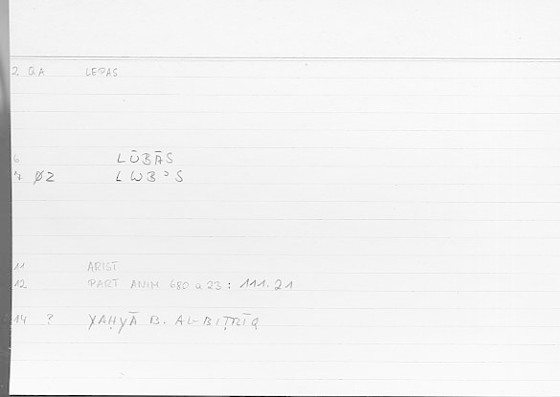 2 QA LEPAS
6 LŪBĀS
7 Ø2 LWBʾS
11 ARIST
12 PART ANIM 680 a 23: 111.21
14 ? YAḤYĀ B. AL-BIṬRĪQ